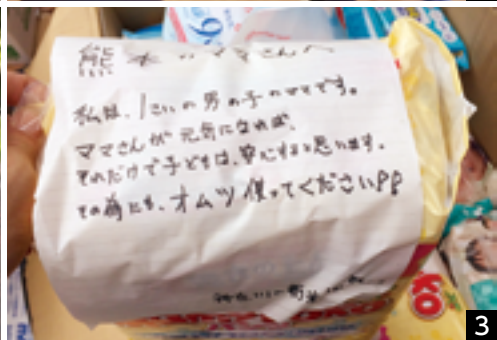 熊本のママさんへ
私は、1さいの男の子のママです。
ママさんが元気になれば、
それだけで子どもは、安心すると思います。
その為にも、オムツ使ってください
KO
3